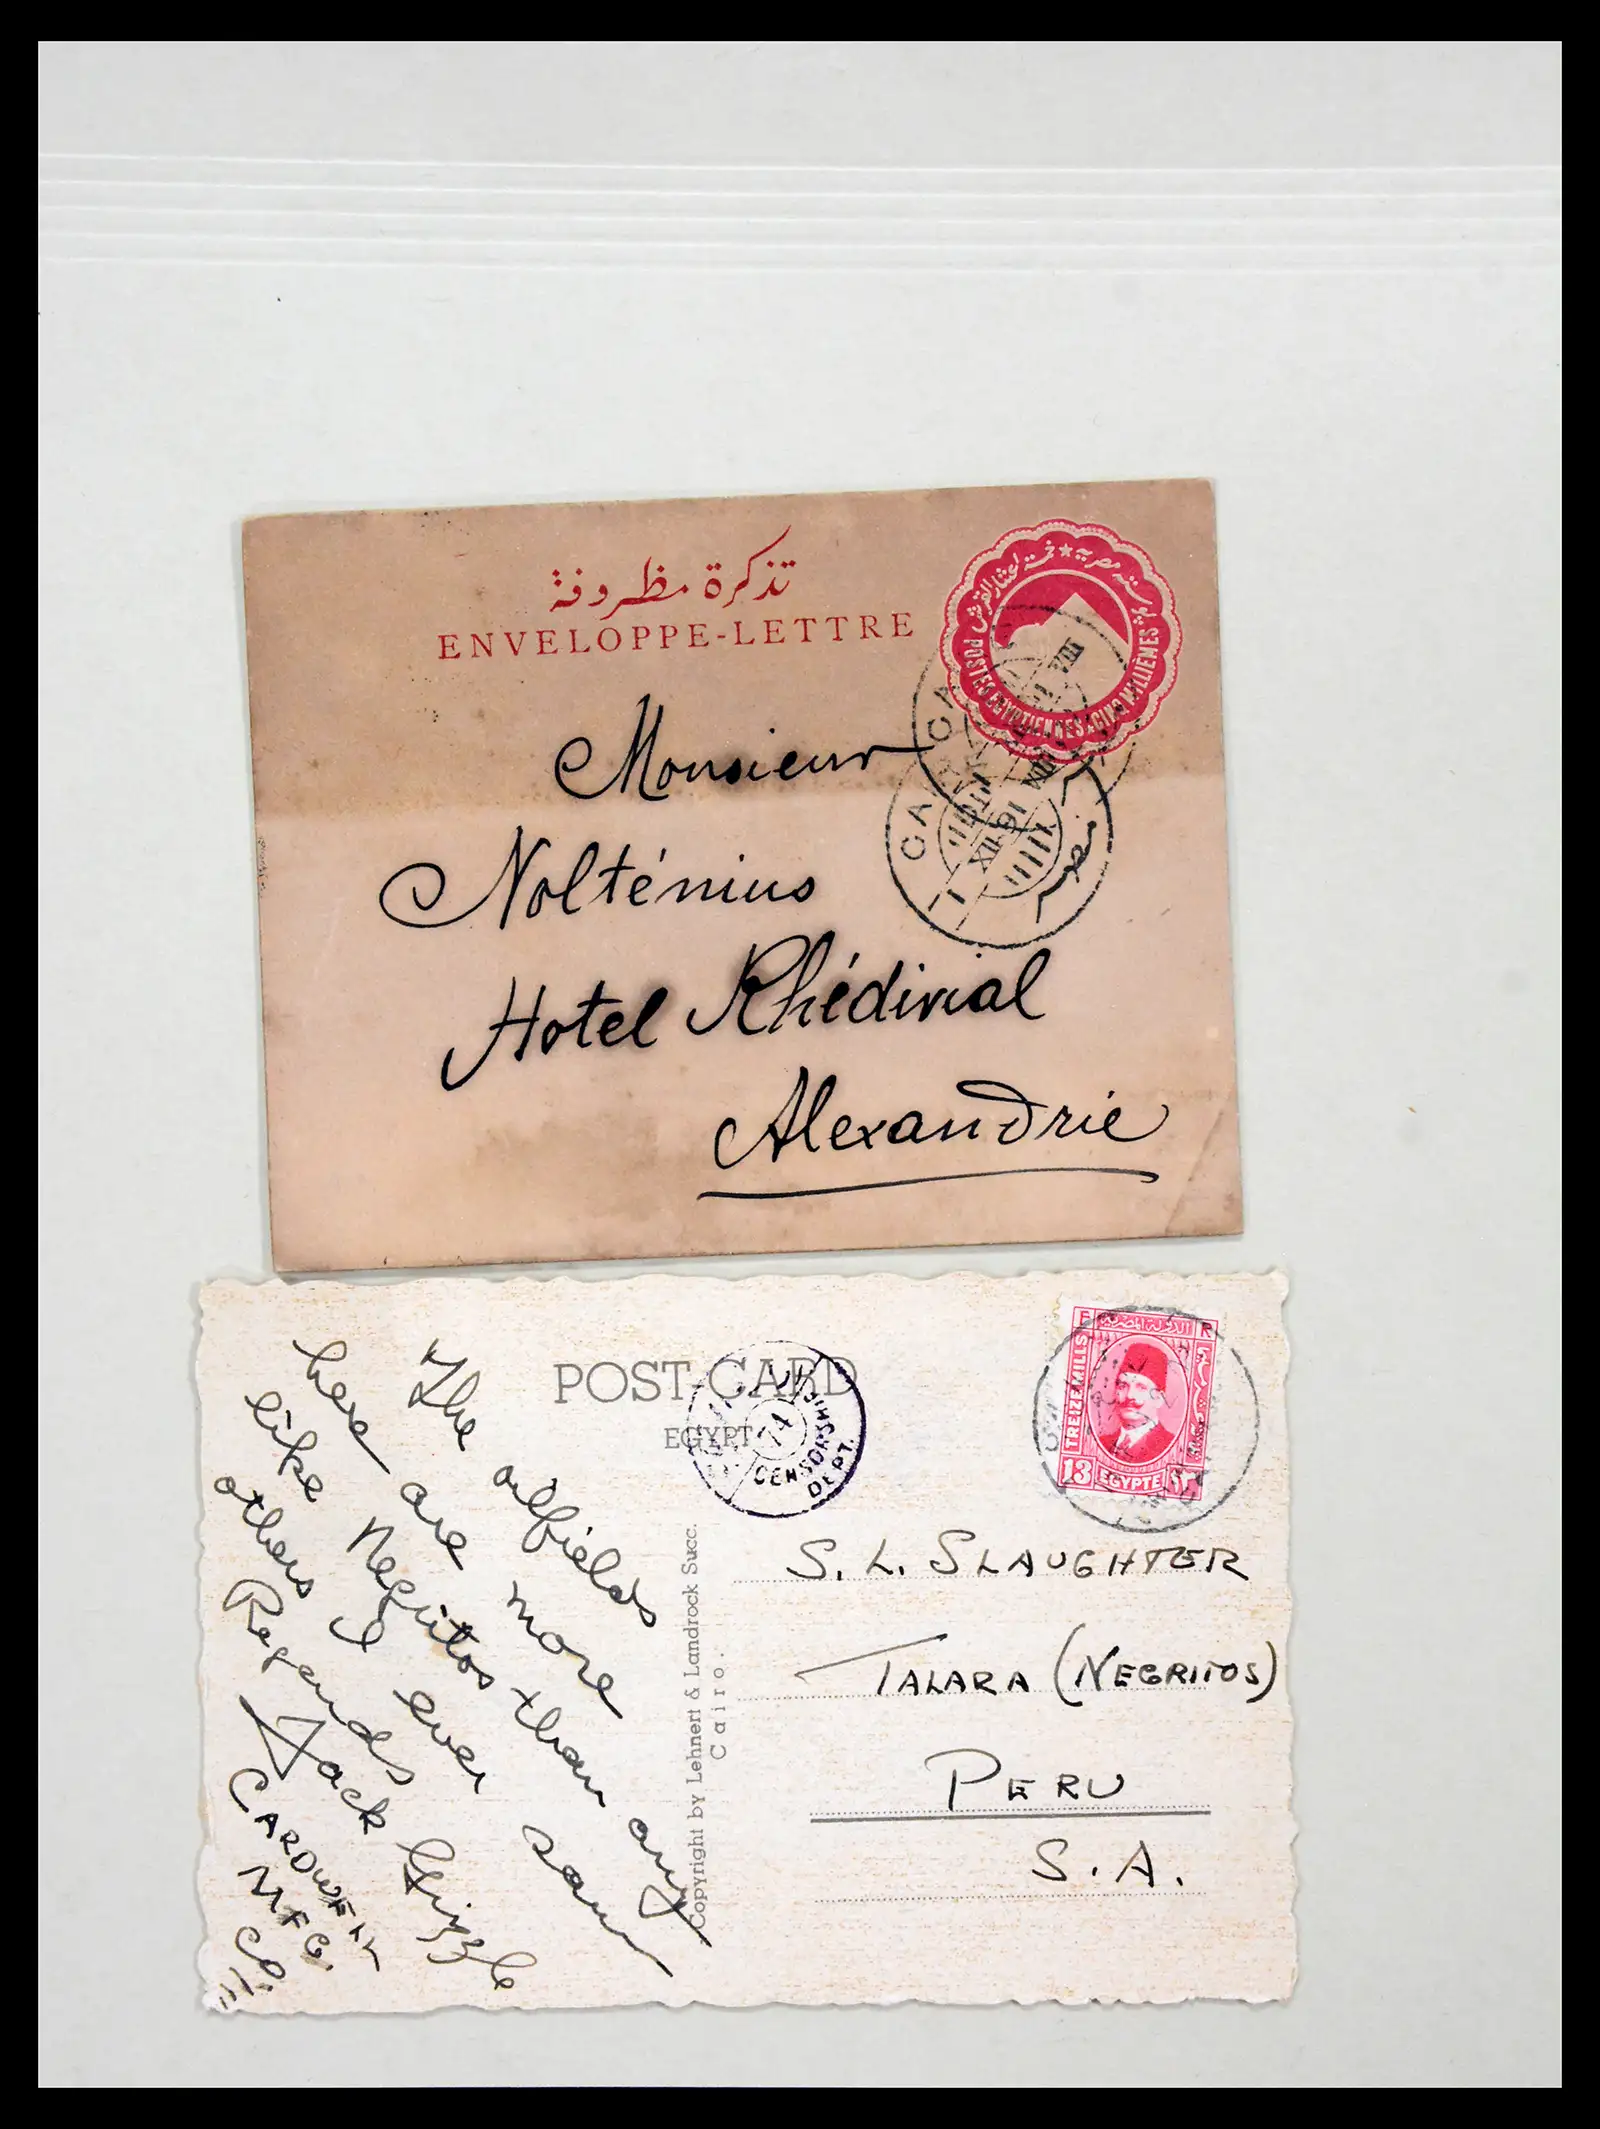 تذكرة مظروفة
ENVELOPPE-LETTRE
بوسته مصريه ★ خمسة اعشار القرش
POSTES EGYPTIENNES CINQ MILLIEMES
CAIRO
Monsieur
Nolténius
Hotel Khédivial
Alexandrie
POST CARD
EGYPT
74
CENSORSHIP
DEPT.
F R
TREIZE MILLS
13 EGYPTE ١٣
The oilfields
here are more
like Negritos than any
others I ever saw
Regards
Jack
CARDWELL
MFG.
CO
Copyright by Lehnert & Landrock Succ.
Cairo.
S. L. SLAUGHTER
TALARA (NEGRITOS)
PERU
S. A.